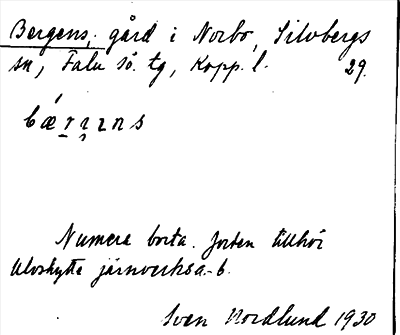 Bergens, gård i Norbo, Silvbergs
sn, Falu sö. tg, Kopp. l. 29.
Numera borta. Jorden tillhör
Ulvshytte järnverksa.-b.
Sven Nordlund 1930